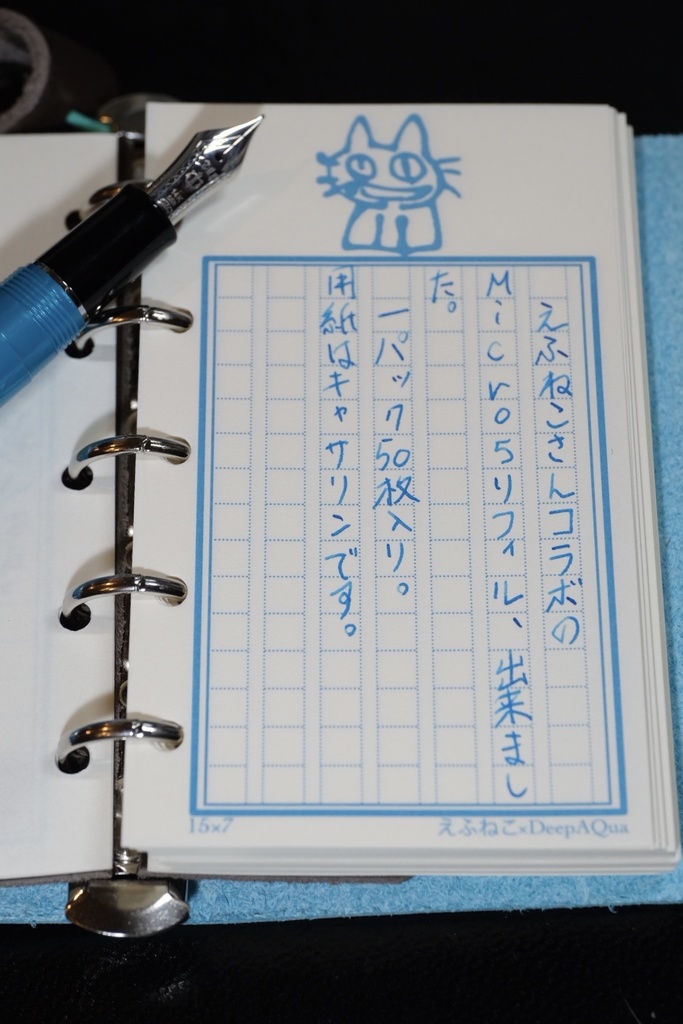 えふねこさんコラボの
Micro5リフィル、出来まし
た。
一パック50枚入り。
用紙はキャサリンです。
15×7
えふねこ×DeepAQua